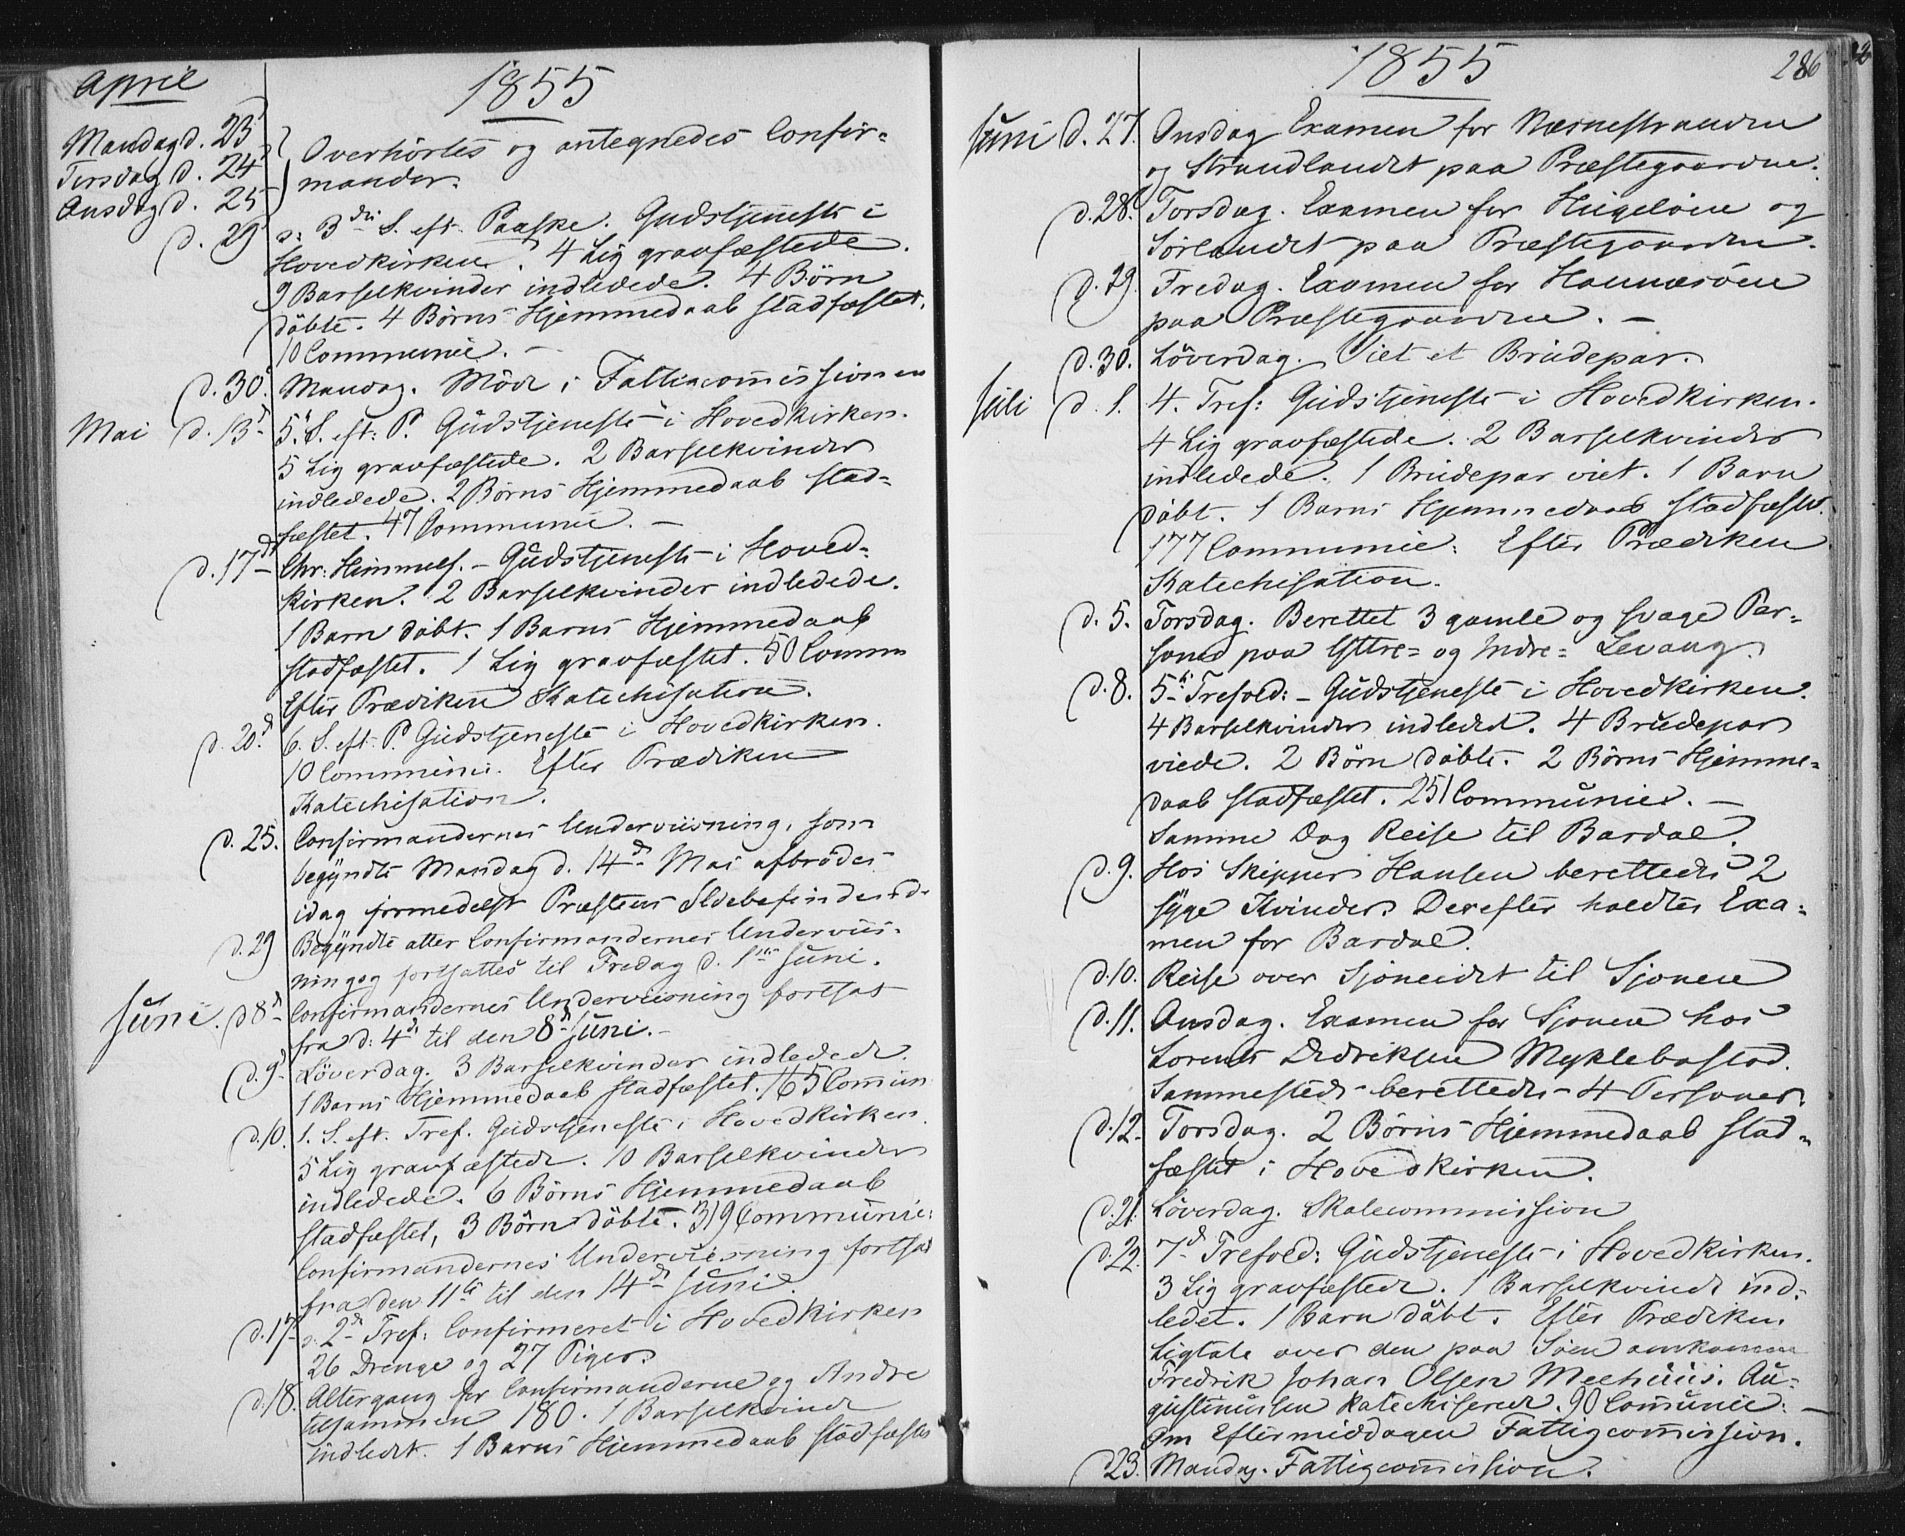 April
1855
Mandag d. 23
Tirsdag d. 24
Onsdag d. 25
Overhørtes og antegnedes Confir-
mander.
d. 29 3die S. eft. Paaske. Gudstjeneste i
Hovedkirken. 4 Lig gravfæstede.
9 Barselkvinder indledede. 4 Börn
döbte. 4 Börns Hjemmedaab stadfæstet.
10 Communic. –
d. 30 Mandag. Möde i Fattigcommissionen
Mai d. 13 5. S. eft: P. Gudstjeneste i Hovedkirken.
5 Lig gravfæstede. 2 Barselkvinder
indledede. 2 Börns Hjemmedaab stad-
fæstet. 47 Communic. –
d. 17 Chr: Himmelf. – Gudstjeneste i Hoved-
kirken. 2 Barselkvinder indledede.
1 Barn döbt. 1 Barns Hjemmedaab
stadfæstet. 1 Lig gravfæstet. 50 Comm
Efter Prædiken Katechisation.
d. 20 6. S. eft. P. Gudstjeneste i Hovedkirken.
10 Communic. Efter Prædiken
Katechisation.
d. 25. Confirmandernes Underviisning, som
begyndte Mandag d. 14d Mai afbrödes
idag formedelst Præstens Ildebefindende
d. 29 Begyndte atter Confirmandernes Underviis-
ning og fortsattes til Fredag d. 1ste Juni.
Juni. d 8 Confirmandernes Underviisning fortsat
fra d. 4d til den 8d Juni. –
d. 9 Löverdag. 3 Barselkvinder indledede.
1 Barns Hjemmedaab stadfæstet. 165 Commun
d. 10. 1. S. eft. Tref. Gudstjeneste i Hovedkirken.
5 Lig gravfæstede. 10 Barselkvinder
indledede. 6 Börns Hjemmedaab
stadfæstet, 3 Börn döbte. 319 Communic:
Confirmandernes Underviisning fortsat
fra den 11te til den 14d Juni.
d. 17 2d Tref: Confirmeret i Hovedkirken
26 Drenge og 27 Piger.
d. 18. Altergang for Confirmanderne og Andre
tilsammen 180. 1 Barselkvinde
indledet. 1 Barns Hjemmedaab stadfæstet
1855
286
Juni d. 27. Onsdag Examen for Næsnestranden
og Strandlandet paa Præstegaarden.
d. 28. Torsdag. Examen for Hugelöen og
Sörlandet paa Præstegaarden.
d. 29. Fredag. Examen for Hannæsöen
paa Præstegaarden. –
d. 30. Löverdag. Viet et Brudepar.
Juli d. 1. 4. Tref: Gudstjeneste i Hovedkirken.
4 Lig gravfæstede. 2 Barselkvinder
indledede. 1 Brudepar viet. 1 Barn
döbt. 1 Barns Hjemmedaab stadfæstet.
177 Communic: Efter Prædiken
Katechisation.
d. 5. Torsdag. Berettet 3 gamle og svage Per-
soner paa Yttre= og Indre= Levang.
d. 8. 5te Trefold: – Gudstjeneste i Hovedkirken.
4 Barselkvinder indledet. 4 Brudepar
viede. 2 Börn döbte. 2 Börns Hjemme-
daab stadfæstet. 251 Communic. –
Samme Dag Reise til Bardal.
d. 9. Hos Skipper Hansen berettede 2
syge Kvinder. Derefter holdtes Exa-
men for Bardal.
d. 10. Reise over Sjoneidet til Sjonen
d. 11. Onsdag. Examen for Sjonen hos
Lorents Dedriksen Myklebostad.
Sammesteds berettede 4 Personer.
d. 12. Torsdag. 2 Börns Hjemmedaab stad-
fæstet i Hovedkirken.
d. 21. Löverdag. Skolecommission
d. 22. 7d Trefold: Gudstjeneste i Hovedkirken.
3 Lig gravfæstede. 1 Barselkvinde ind-
ledet. 1 Barn döbt. Efter Prædiken.
Ligtale over den paa Söen omkomne
Fredrik Johan Olsen Meehuus. Au-
gustinussen katechiserede. 90 Communic: –
Om Eftermiddagen Fattigcommission.
d. 23. Mandag. Fattigcommission.